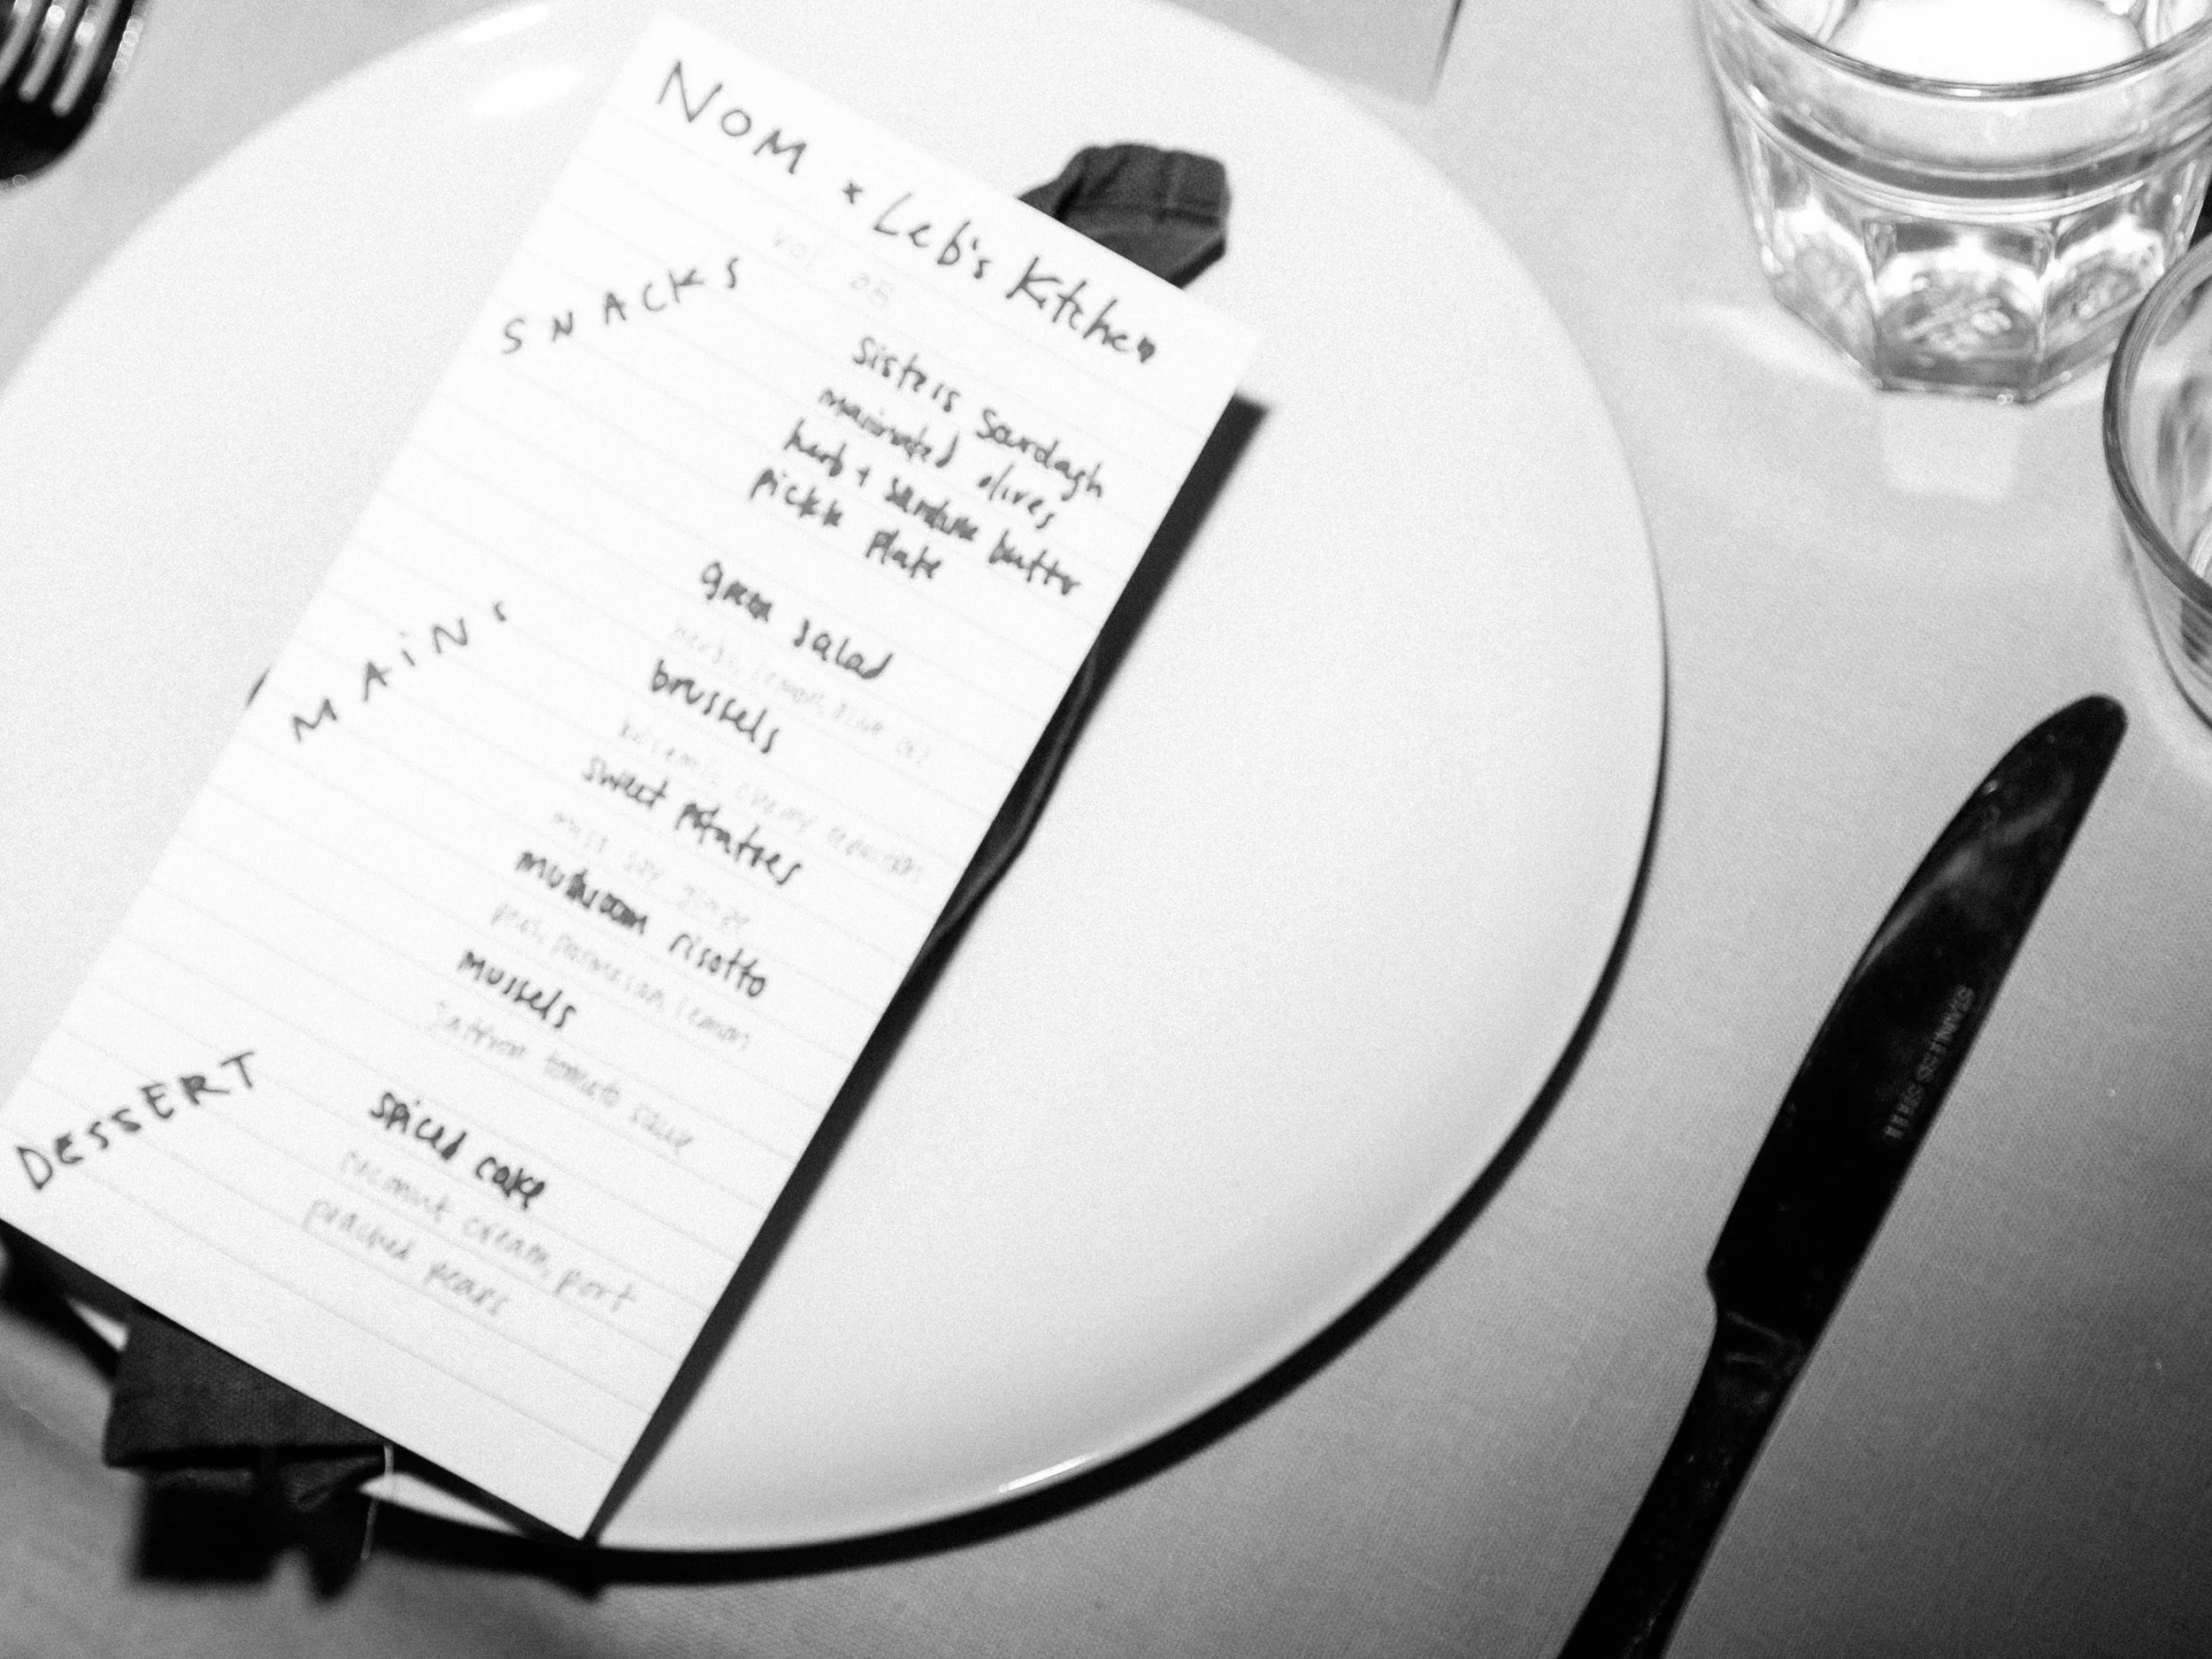 NOM x Leb's Kitchen
VOL
SNACKS
Sister's Sourdough
marinated olives
herb + sardine butter
pickle plate
MAINS
green salad
herbs, lemon, olive oil
brussels
balsamic, creamy
sweet potatoes
miso soy
mushroom risotto
parmesan, lemon
mussels
saffron tomato sauce
DESSERT
spiced cake
coconut cream, port
poached pears
STAINLESS STEEL